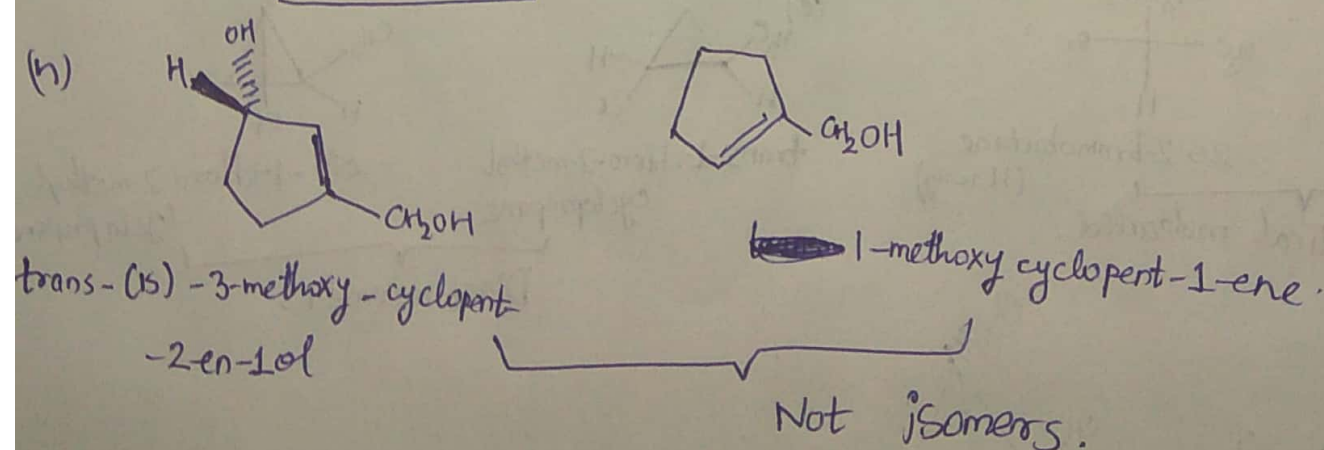 (h)
OH
H
CH2OH
CH2OH
trans-(1S)-3-methoxy-cyclopent
-2-en-1ol
1-methoxy cyclopent-1-ene.
Not isomers.